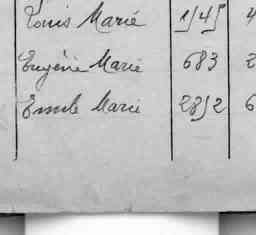 Louis Marie 1545 4
Eugénie Marie 683 2
Emile Marie 2852 6